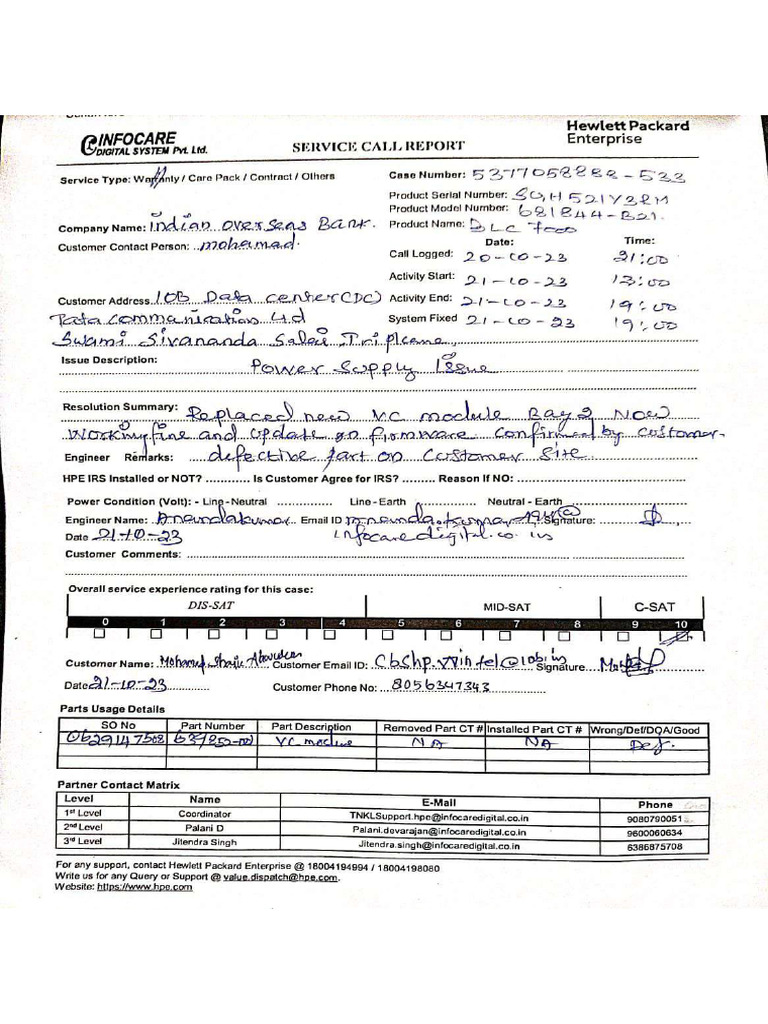 INFOCARE
DIGITAL SYSTEM Pvt. Ltd.
SERVICE CALL REPORT
Hewlett Packard
Enterprise
Service Type: Warranty / Care Pack / Contract / Others
Case Number: 5377058888-533
Product Serial Number: SGH521Y3RM
Product Model Number: 681844-B21
Company Name: Indian Overseas Bank.
Product Name: BLC 7000
Customer Contact Person: mohamad.
Date: Time:
Call Logged: 20-10-23 21:00
Activity Start: 21-10-23 13:00
Customer Address IOB Data center (DC)
Activity End: 21-10-23 19:00
Tata Communication Ltd
System Fixed 21-10-23 19:00
Swami Sivananda Salai Triplcane,
Issue Description: Power Supply Issue
Resolution Summary: Replaced new VC module Bay 2 Now
Working fine and update on firmware confirmed by customer-
Engineer Remarks: defective part on Customer Site.
HPE IRS Installed or NOT? Is Customer Agree for IRS? Reason If NO:
Power Condition (Volt): - Line - Neutral Line - Earth Neutral - Earth
Engineer Name: Anandakumar Email ID Signature:
Date 21-10-23 infocaredigital.co.in
Customer Comments:
Overall service experience rating for this case:
DIS-SAT MID-SAT C-SAT
0 1 2 3 4 5 6 7 8 9 10
Customer Name: Customer Email ID: Signature
Date 21-10-23 Customer Phone No: 8056347343
Parts Usage Details
SO No Part Number Part Description Removed Part CT # Installed Part CT # Wrong/Def/DOA/Good
0629147508 VC module NA NA Def.
Partner Contact Matrix
Level Name E-Mail Phone
1st Level Coordinator TNKLSupport.hpe@infocaredigital.co.in 9080790051
2nd Level Palani D Palani.devarajan@infocaredigital.co.in 9600060634
3rd Level Jitendra Singh Jitendra.singh@infocaredigital.co.in 6386875708
For any support, contact Hewlett Packard Enterprise @ 18004194994 / 18004198080
Write us for any Query or Support @ value.dispatch@hpe.com.
Website: https://www.hpe.com